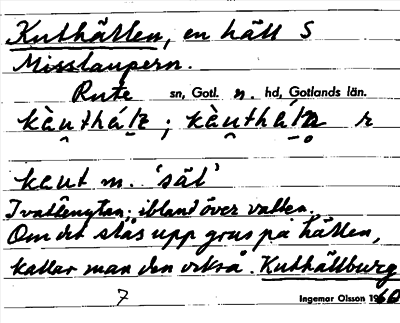 Kuthällen, en häll S
Misslaupern.
Rute sn, Gotl. n. hd, Gotlands län.
kaut m. 'säl'
I vattenytan; ibland över vatten.
Om det slås upp grus på hällen,
kallar man den också Kuthällburg
7 Ingemar Olsson 1960